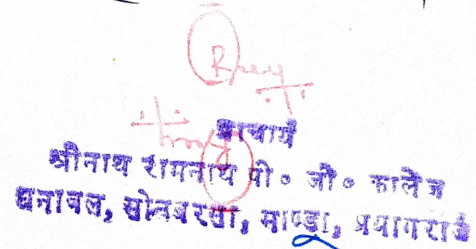 प्राचार्य
श्रीनाथ रामनाथ पी० जी० कालेज
धनावल, सोनबरसा, माण्डा, प्रयागराज